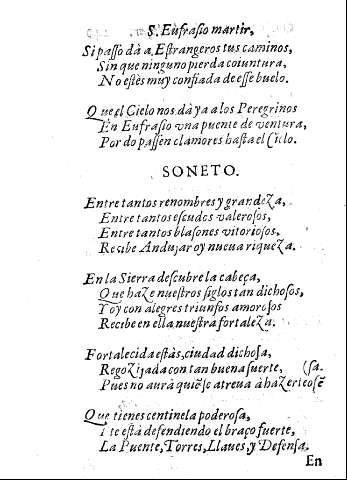 S. Eufrasio martir,
Si passo dà a Estrangeros tus caminos,
Sin que ninguno pierda coiuntura,
No estès muy confiada de esse buelo.
Que el Cielo nos dà ya a los Peregrinos
En Eufrasio vna puente de ventura,
Por do passen clamores hasta el Cielo.
SONETO.
Entre tantos renombres y grandeza,
Entre tantos escudos valerosos,
Entre tantos blasones vitoriosos,
Recibe Andujar oy nueua riqueza.
En la Sierra descubre la cabeça,
Que haze nuestros siglos tan dichosos,
Y oy con alegres triunfos amorosos
Recibe en ella nuestra fortaleza.
Fortalecida estàs, ciudad dichosa,
Regozijada con tan buena suerte, (sa.
Pues no aurà quiẽ se atreua à hazerte osẽ
Que tienes centinela poderosa,
Y te està defendiendo el braço fuerte,
La Puente, Torres, Llaues, y Defensa.
En